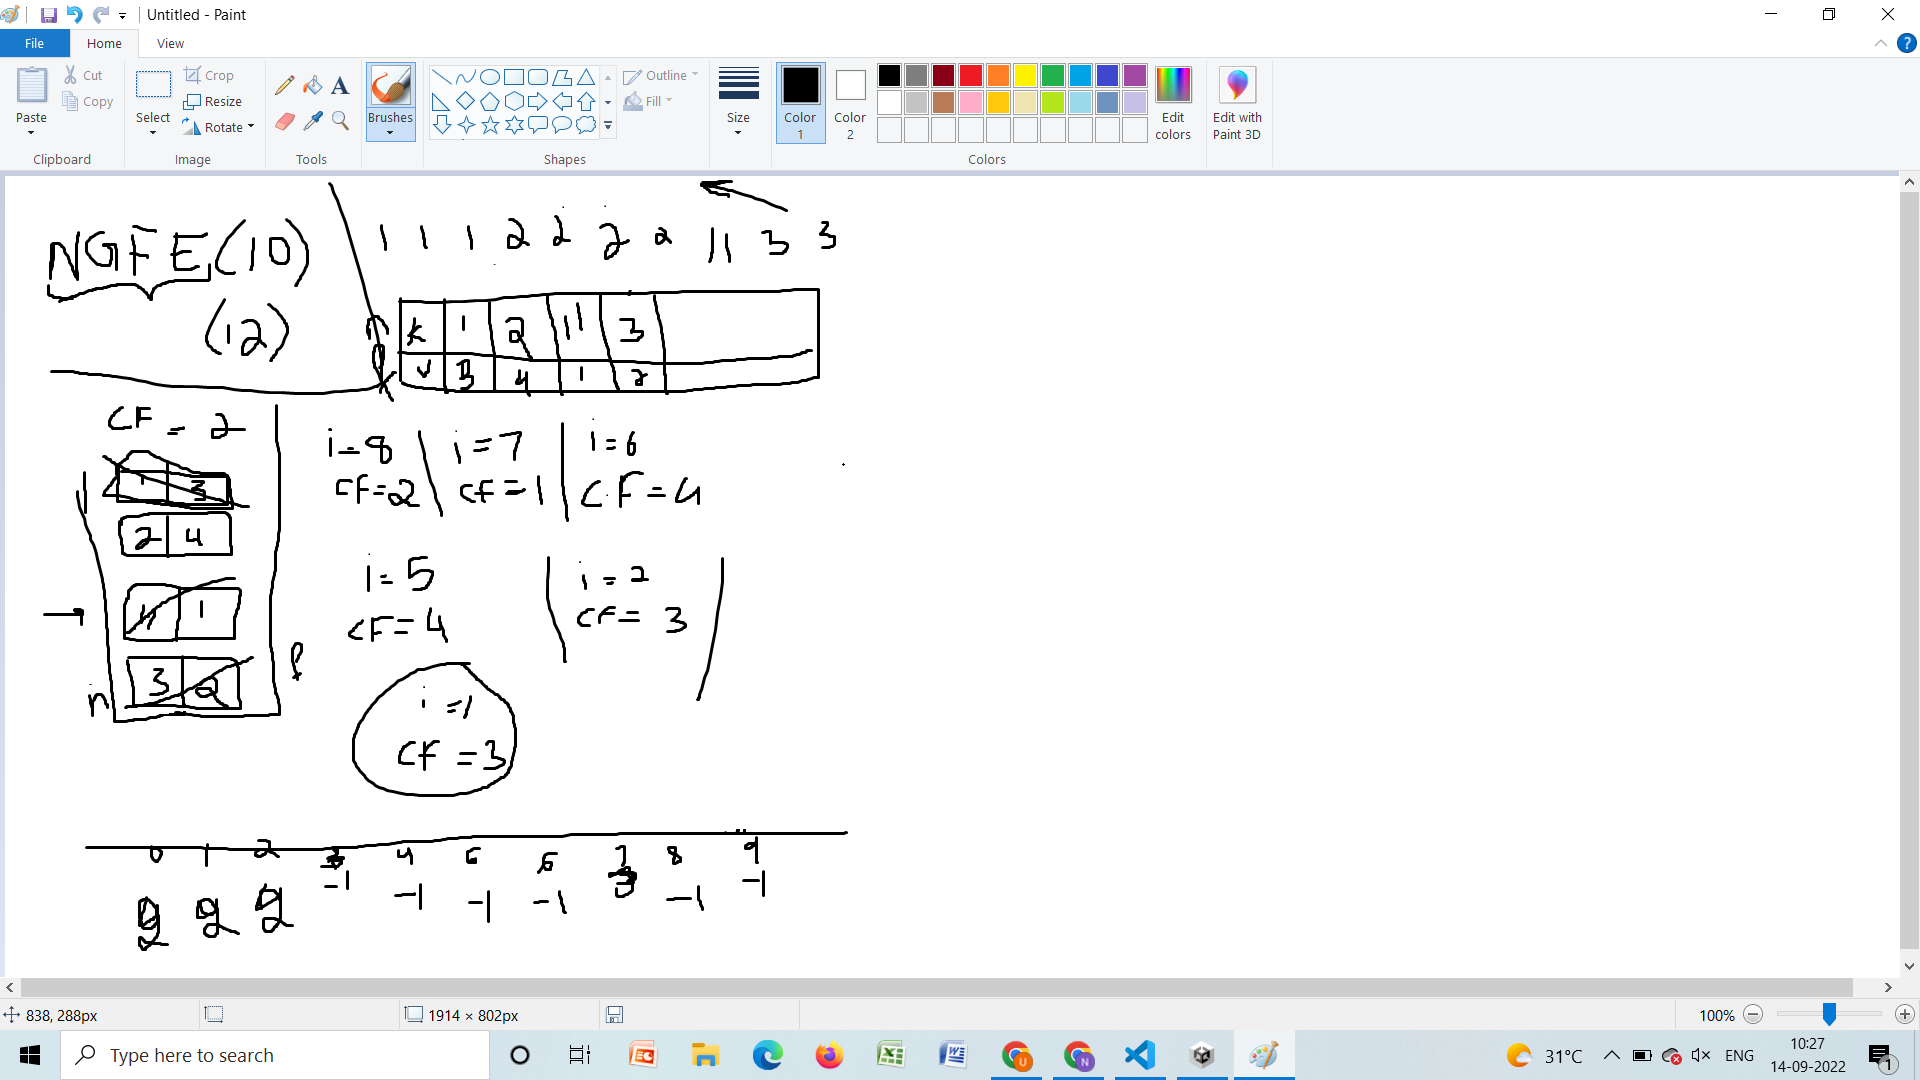 Untitled - Paint
File Home View
Cut
Copy
Paste
Clipboard
Crop
Resize
Rotate
Select
Image
Tools
Brushes
Outline
Fill
Shapes
Size
Color 1
Color 2
Edit colors
Colors
Edit with Paint 3D
NGFE(10)
(12)
1 1 1 2 2 2 2 11 3 3
K 1 2 11 3
V 3 4 1 2
CF = 2
1 3
2 4
11 1
3 2
i=8 i=7 i=6
CF=2 CF=1 CF=4
i=5 i=2
CF=4 CF=3
i=1
CF=3
0 1 2 3 4 5 6 7 8 9
2 2 2 -1 -1 -1 -1 3 -1 -1
838, 288px
1914 × 802px
100%
Type here to search
31°C
ENG
10:27
14-09-2022
1